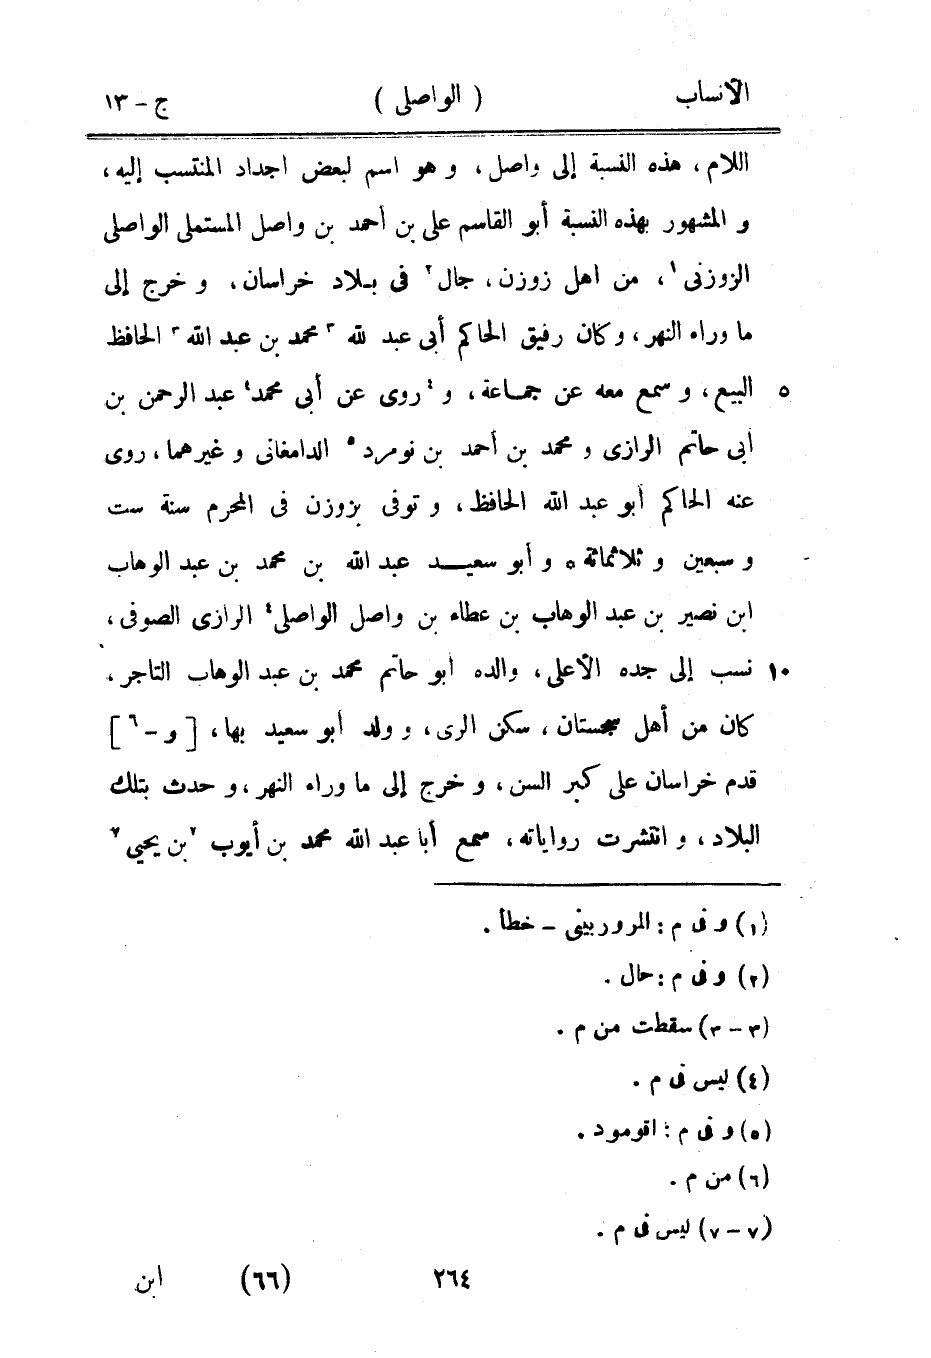 الأنساب ( الواصلى ) ج - ١٣
اللام ، هذه النسبة إلى واصل ، و هو اسم لبعض اجداد المنتسب إليه ،
و المشهور بهذه النسبة أبو القاسم على بن أحمد بن واصل المستملى الواصلى
الزوزنى ١ ، من اهل زوزن ، جال ٢ فى بلاد خراسان ، و خرج إلى
ما وراء النهر ، و كان رفيق الحاكم أبى عبد لله ٣ محمد بن عبد الله ٣ الحافظ
البيع ، و سمع معه عن جماعة ، و ٤ روى عن أبى محمد ٤ عبد الرحمن بن ٥
أبى حاتم الرازى و محمد بن أحمد بن نومرد ٥ الدامغانى و غيرهما ، روى
عنه الحاكم أبو عبد الله الحافظ ، و توفى بزوزن فى المحرم سنة ست
و سبعين و ثلاثمائة ه و أبو سعيد عبد الله بن محمد بن عبد الوهاب
ابن نصير بن عبد الوهاب بن عطاء بن واصل الواصلى ٤ الرازى الصوفى ،
نسب إلى جده الأعلى ، والده ابو حاتم محمد بن عبد الوهاب التاجر ، ١٠
كان من أهل سجستان ، سكن الرى ، و ولد أبو سعيد بها ، [ و - ٦ ]
قدم خراسان على كبر السن ، و خرج إلى ما وراء النهر ، و حدث بتلك
البلاد ، و انتشرت رواياته ، سمع أبا عبد الله محمد بن أيوب ٧ بن يحيى ٧
(١) و فى م : المروربينى - خطأ .
(٢) و فى م : حال .
(٣ - ٣) سقطت من م .
(٤) ليس فى م .
(٥) و فى م : اقومود .
(٦) من م .
(٧ - ٧) ليس فى م .
٢٦٤ (٦٦) ابن